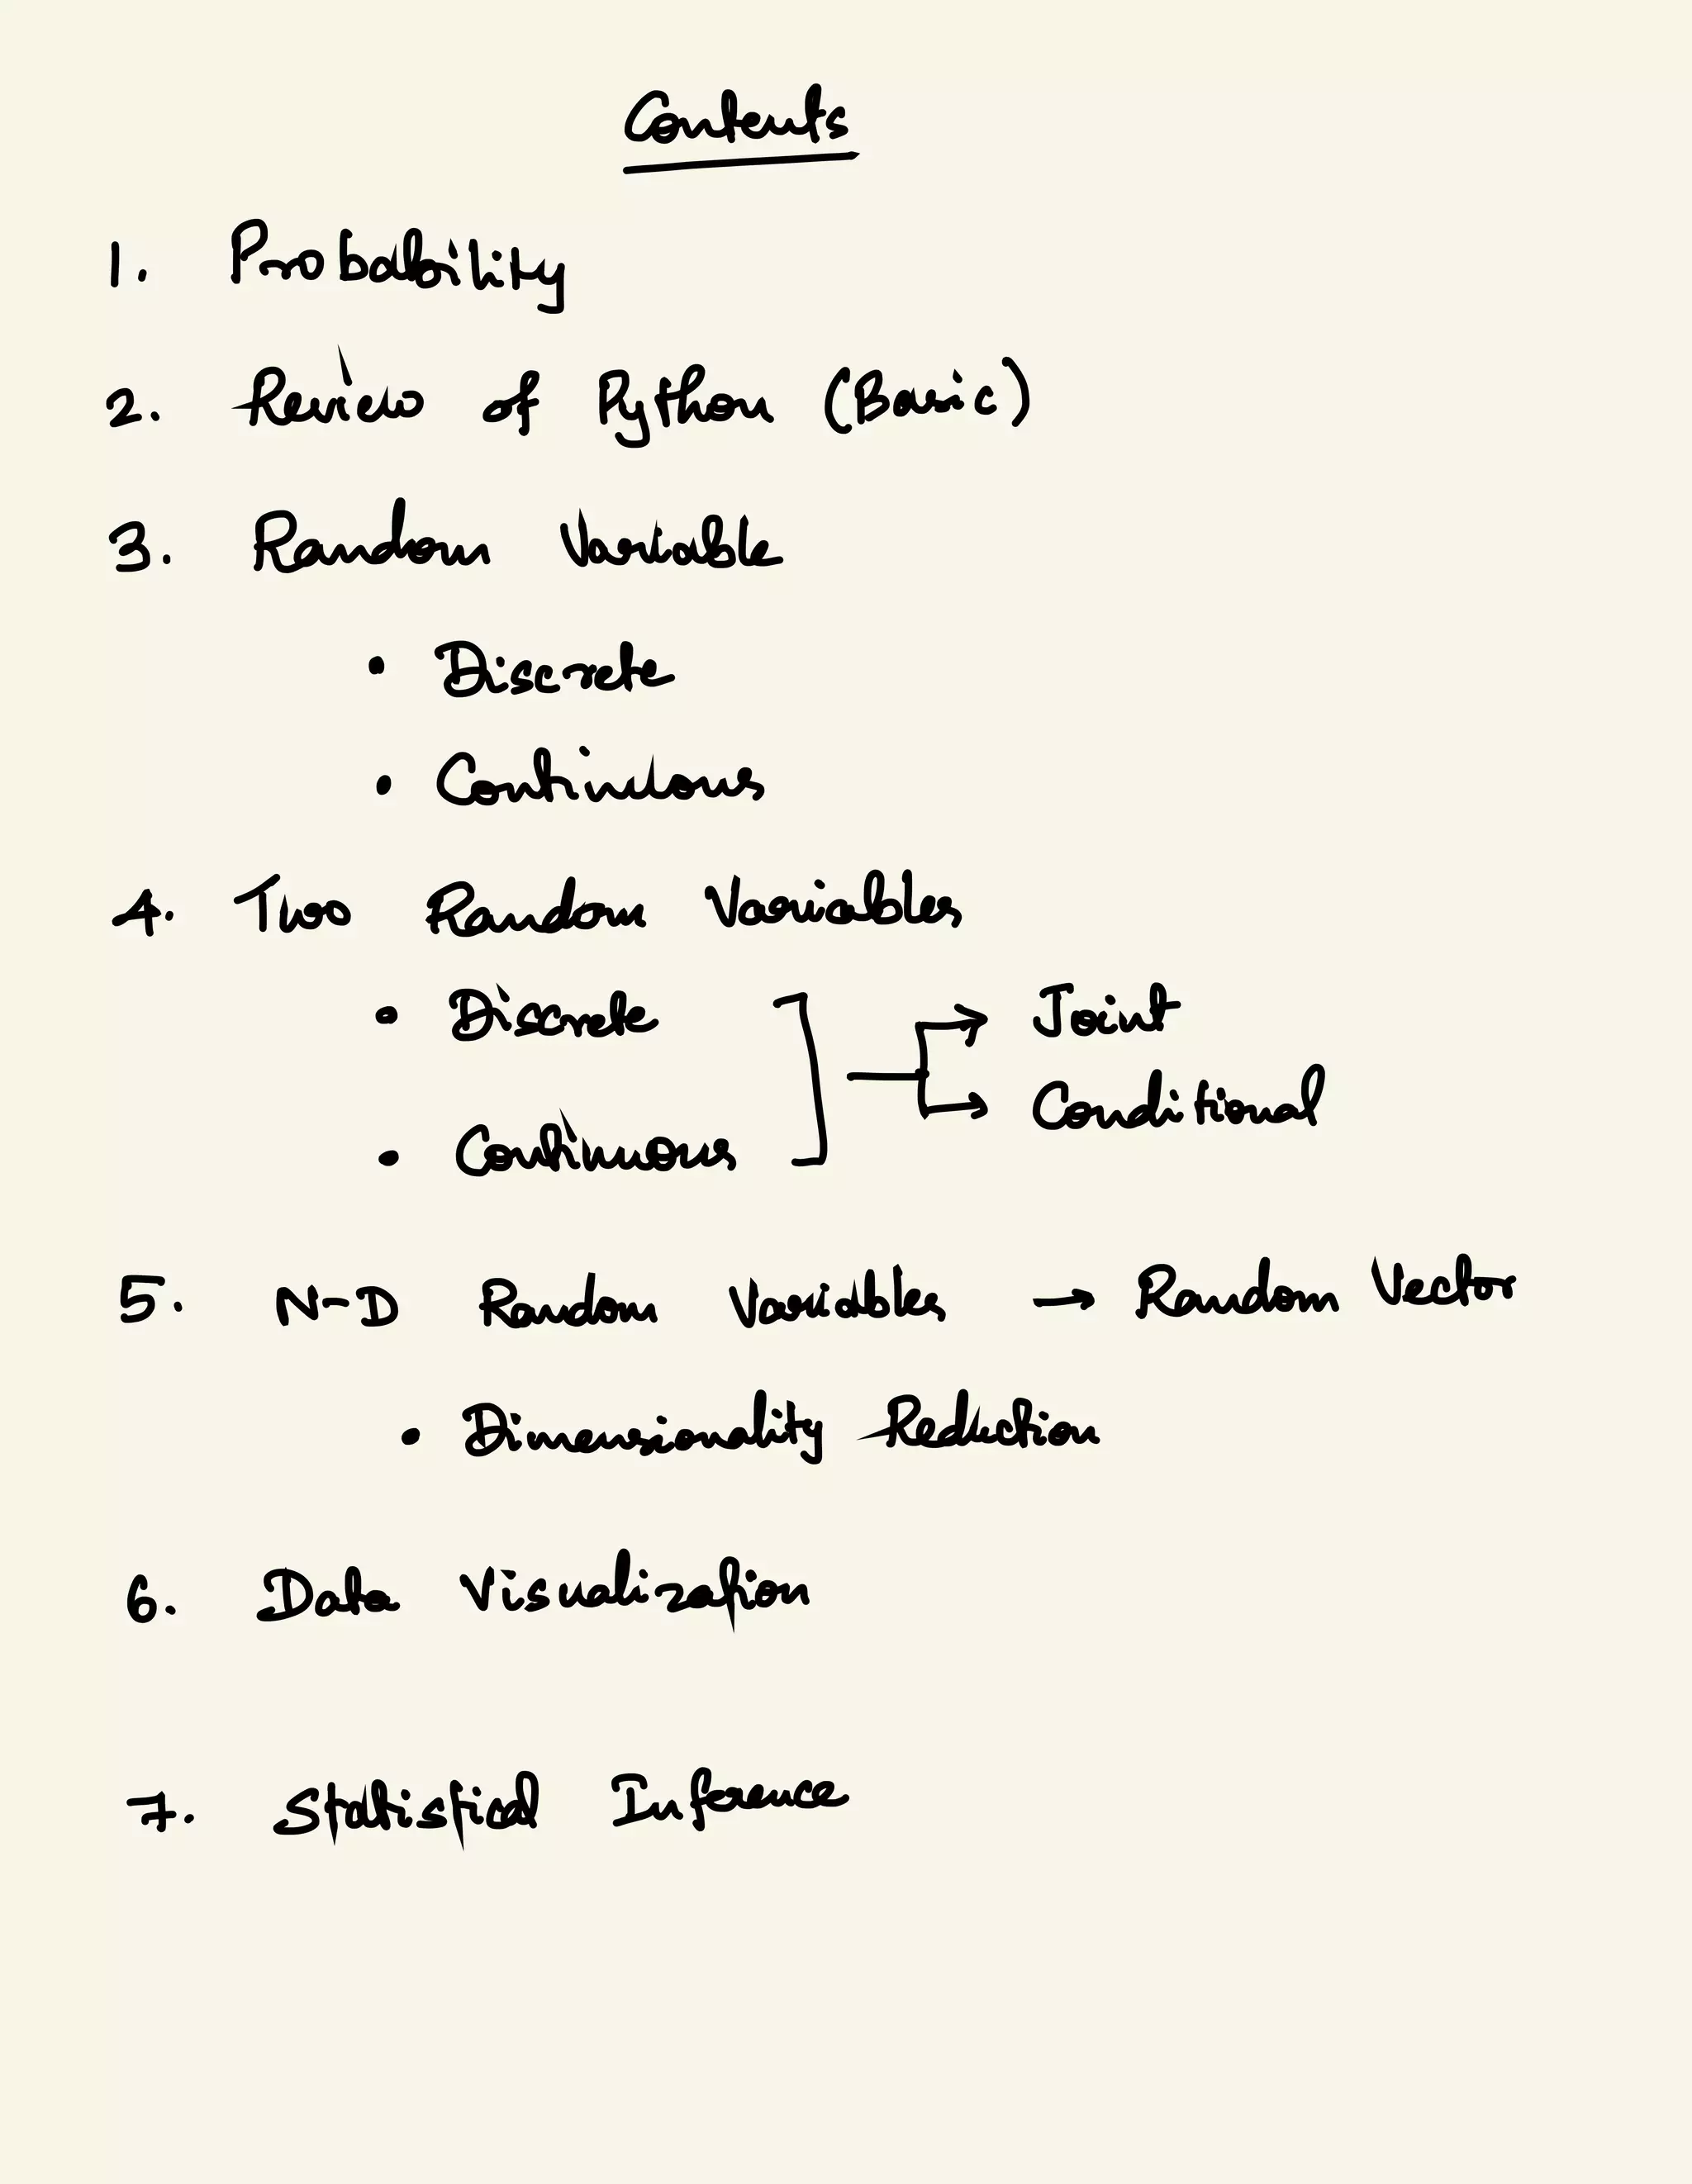 Contents
1. Probability
2. Review of Python (Basic)
3. Random Variable
• Discrete
• Continuous
4. Two Random Variables
• Discrete → Joint
→ Conditional
• Continuous
5. N-D Random Variables → Random Vector
• Dimensionality Reduction
6. Data Visualization
7. Statistical Inference